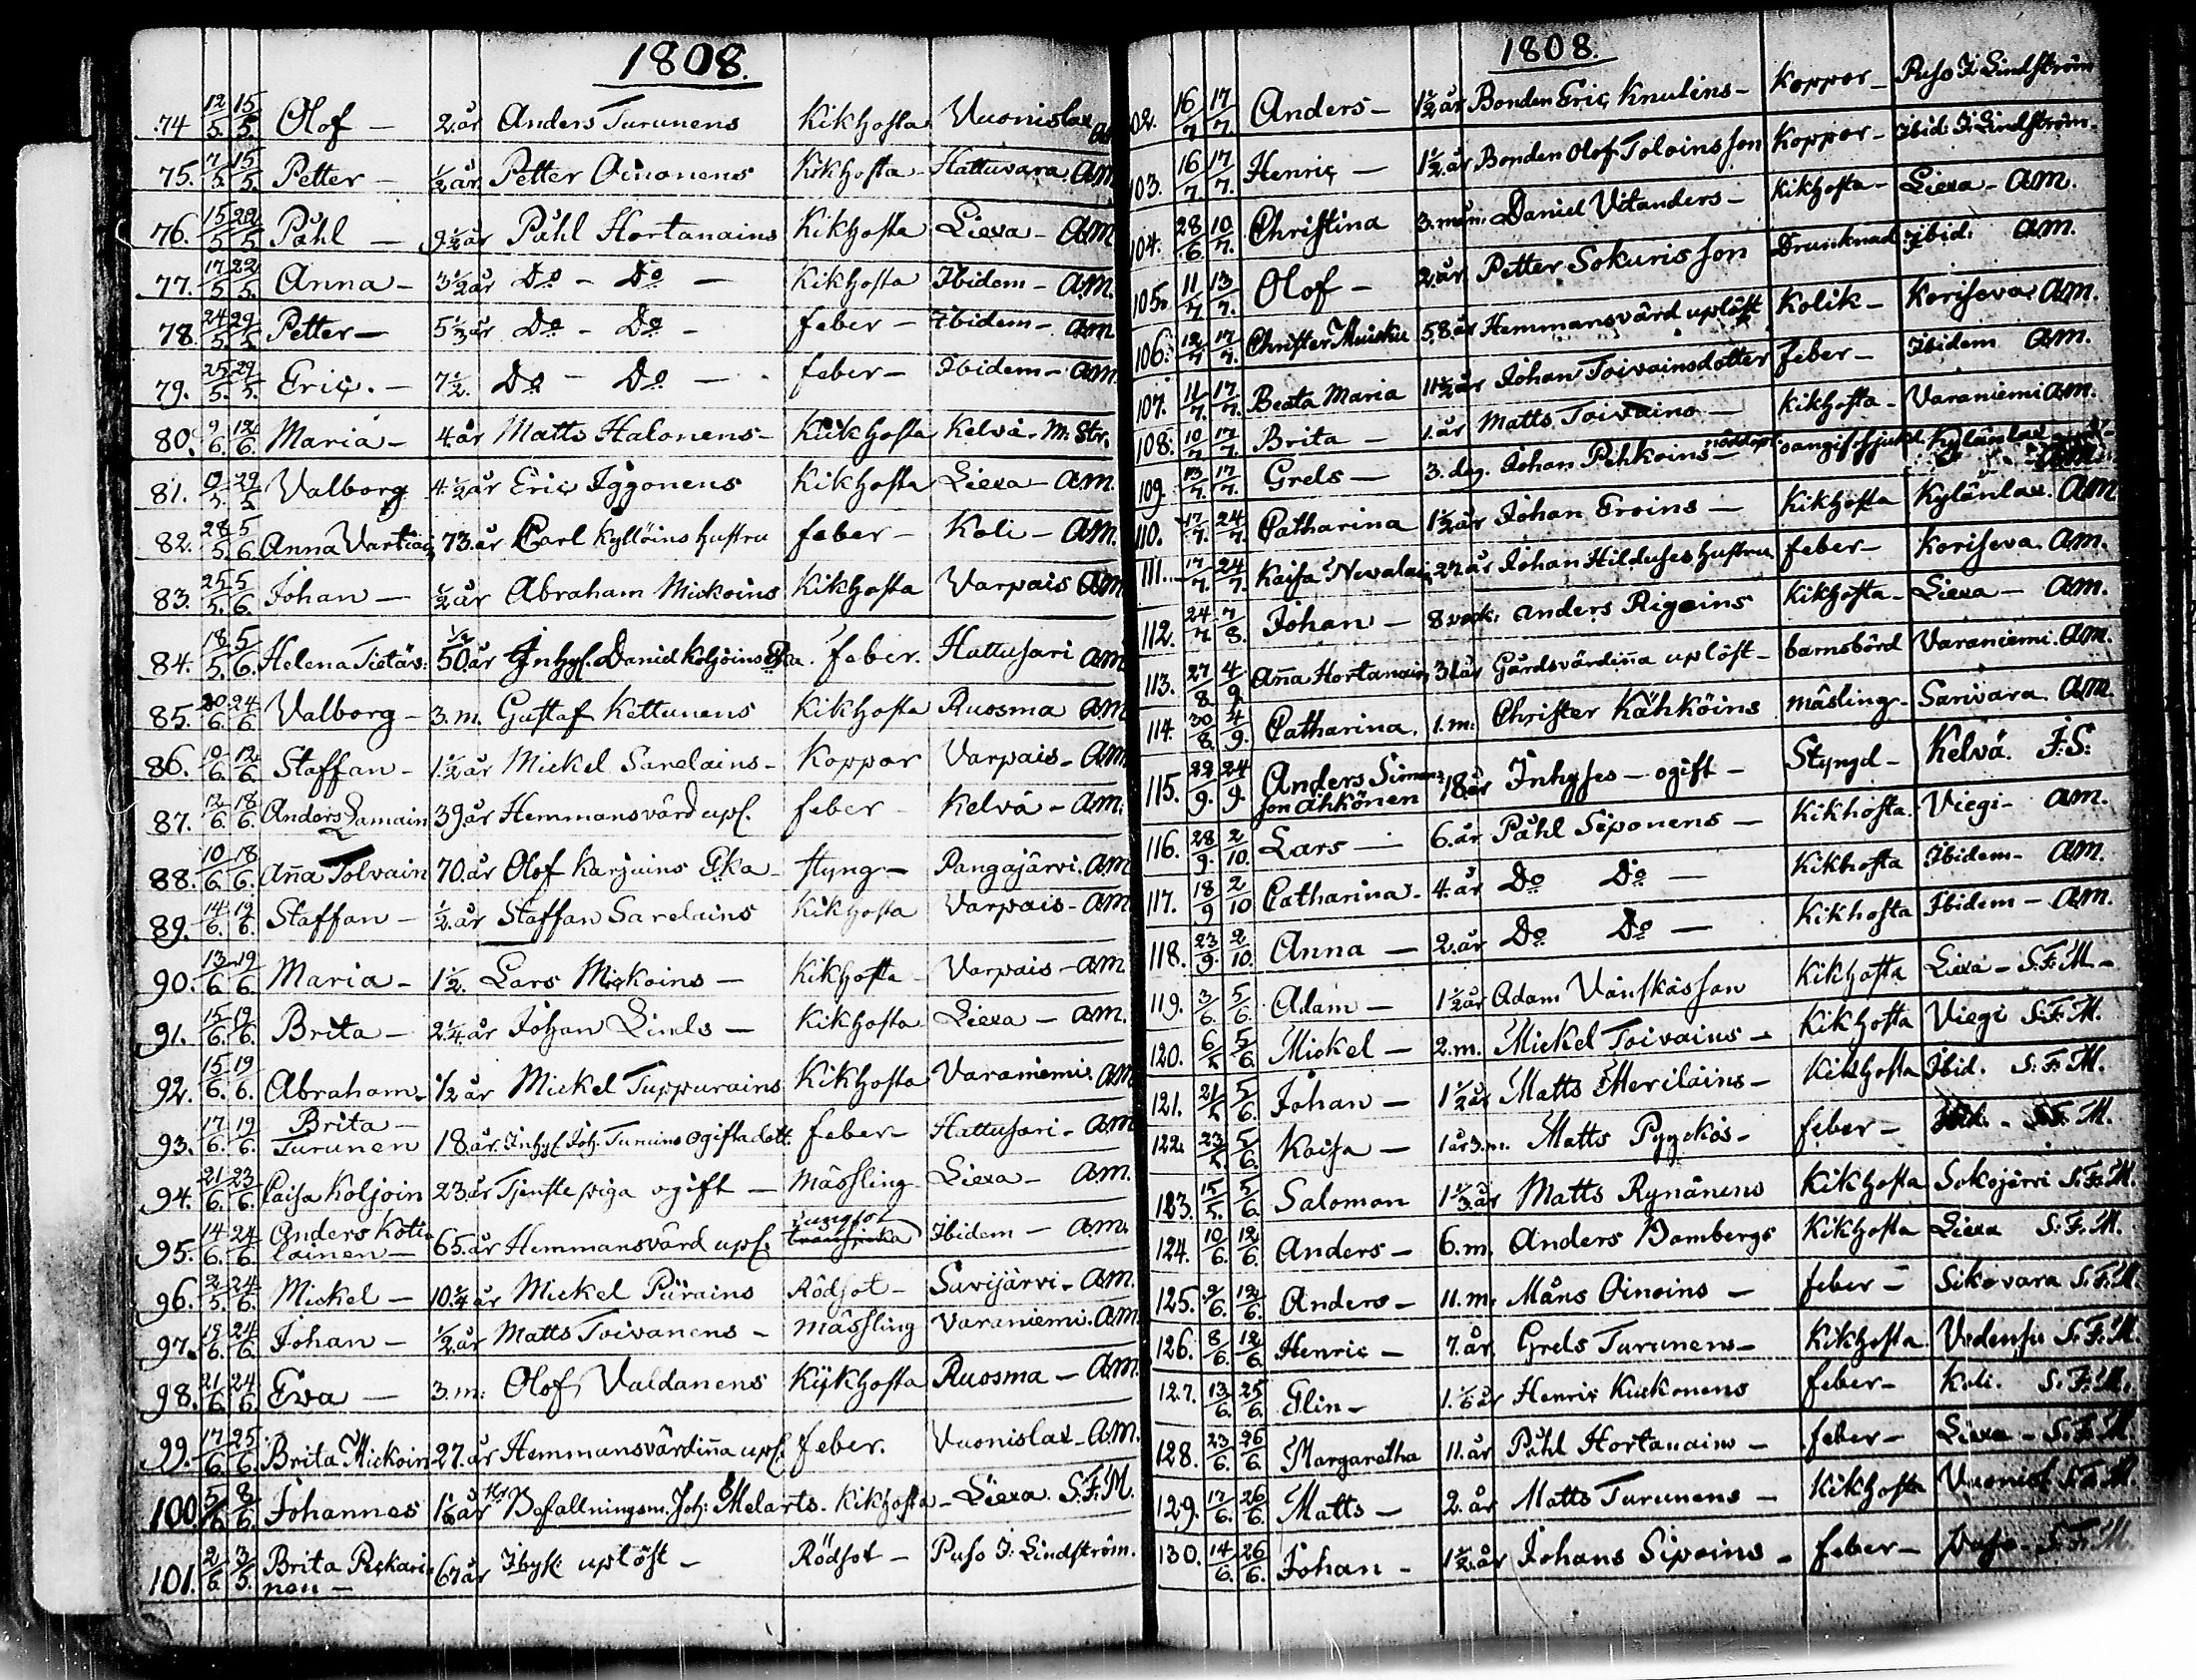 1808.
74 12/5. 15/5. Olof — 2 år Anders Turunens Kikhosta Vuonislax
75. 7/5. 15/5. Petter — ½ år Petter Oinonens Kikhosta Hattuvara. A.M.
76. 15/5 22/5 Påhl — 9½ år Påhl Hortanains Kikhosta Liexa — A.M.
77. 17/5 22/5. Anna — 3½ år Do — Do — Kikhosta Ibidem — A.M.
78. 24/5 29/5 Petter — 5⅓ år Do — Do — feber — Ibidem — A.M.
79. 25/5. 29/5. Eric. — 7½. Do — Do — feber — Ibidem — A.M.
80. 9/6. 12/6. Maria — 4 år Matts Halonens — Kikhosta Kelvå. M. Str.
81. 29/5 Valborg 4½ år Eric Iggonens Kikhosta Liexa — A.M.
82. 28/5. 5/6. Anna Vartiain 73. år Carl Kyllöins hustru feber — Koli — A.M.
83. 25/5. 5/6. Johan — ½ år Abraham Mickoins Kikhosta Varpais A.M.
84. 18/5. 5/6. Helena Tietäv: 50½ år Inhys. Daniel Koljoins Eka. feber. Hattusari A.M.
85. 20/6. 24/6 Valborg — 3. m. Gustaf Kettunens Kikhosta Ruosma A.M.
86. 10/6. 12/6. Staffan — 1½ år Mickel Sarelains — Koppor Varpais — A.M.
87. 12/6. 18/6. Anders Lamain 39. år Hemmansvärd upl. feber Kelvå — A.M.
88. 10/6. 18/6. Aña Tolvain 70. år Olof Karjains Eka — styng — Pangajärvi. A.M.
89. 14/6. 19/6. Staffan — ½ år Staffan Sarelains Kikhosta Varpais — A.M.
90. 13/6 19/6. Maria — 1½. Lars Mickoins — Kikhosta Varpais — A.M.
91. 15/6. 19/6. Brita — 2¼ år Johan Linds — Kikhosta Liexa — A.M.
92. 15/6. 19/6. Abraham — ½ år Mickel Tuppurains Kikhosta Varaniemi A.M.
93. 17/6. 19/6. Brita — Turunen 18. år. Inhys. Joh: Turuins ogifta dott. feber — Hattusari — A.M.
94. 21/6. 23/6. Caisa Koljoin 23. år Tjenste piga ogift — Mässling Liexa — A.M.
95. 14/6. 24/6. Anders Koti- lainen — 65. år Hemmansvärd upl. Lungsot Ibidem — A.M.
96. 2/5. 24/6. Mickel — 10¼ år Mickel Piirains Rödsot — Savijärvi — A.M.
97. 19/6. 24/6. Johan — ½ år Matts Toivanens — Mässling Varaniemi. A.M.
98. 21/6. 24/6. Ewa — 3. m. Olof Valdanens Kikhosta Ruosma — A.M.
99. 17/6. 25/6. Brita Mickoin 27. år Hemmansvärdiña upl. feber. Vuonislax — A.M.
100. 5/6 8/6. Johannes 1⅙ år Hr Befallningsm. Joh: Melarts. Kikhosta — Liexa. S.F.M.
101. 2/6. 3/5. Brita Reckari- nen — 67 år Ihys. uplöst — Rödsot — Puso J. Lindström.
1808.
02. 16/7 17/7. Anders — 1½ år Bonden Eric Knutins — Koppor — Puso J. Lindström
103. 16/7. 17/7. Henric — 1½ år Bonden Olof Toloins son Koppor — Ibid: J. Lindström.
104. 28/6. 10/7. Christina 3. mån. Daniel Vitanders — Kikhosta — Liexa — A.M.
105. 11/7 13/7. Olof — 2. år Petter Sokuris son Drunknad Ibid: A.M.
106. 12/7 17/7. Christer Muisku 58. år Hemmansvärd uplöst Kolik — Koriseva A.M.
107. 11/7. 17/7. Beata Maria 11½ år Johan Toivainsdotter feber — Ibidem A.M.
108. 10/7 17/7. Brita — 1. år Matts Toivains — Kikhosta — Varaniemi A.M.
109. 13/7. 17/7. Grels — 3. dag. Johan Pehkoins — nöddöpt. oangifs. sjukd. Kylänlax A.M.
110. 17/7. 24/7. Catharina 1½ år Johan Eroins — Kikhosta Kylänlax. A.M.
111. 17/7. 24/7. Kaisa Nevalain 27. år Johan Hilduses hustru feber — Koriseva. A.M.
112. 24/7. 7/8. Johan — 8 veck: Anders Rigoins Kikhosta — Liexa — A.M.
113. 27/8 4/9. Aña Hortanain 31. år Gårdsvärdiña uplöst — barnsbörd Varaniemi. A.M.
114. 30/8. 4/9. Catharina. 1. m: Christer Kähköins mäsling — Sarivara. A.M.
115. 22/9. 24/9. Anders Simons son Ähkönen 18. år Inhyses — ogift — Styngd — Kelvå. J.S:
116. 28/9. 2/10. Lars — 6. år Påhl Siponens — Kikhosta. Viegi — A.M.
117. 18/9 2/10 Catharina — 4. år Do Do — Kikhosta Ibidem — A.M.
118. 23/9. 2/10. Anna — 2. år Do Do — Kikhosta Ibidem — A.M.
119. 3/6. 5/6. Adam — 1½ år Adam Vänskäs son Kikhosta Liexa — S.F.M. —
120. 6/5 5/6. Mickel — 2. m. Mickel Toivains — Kikhosta Viegi S.F.M.
121. 21/5 5/6. Johan — 1½ år Matts Meriläins — Kikhosta Ibid. S.F.M.
122. 23/5. 5/6. Kaisa — 1 år 3. m. Matts Pyyckös — feber — S.F.M.
123. 15/5. 5/6. Salomon 1⅓ år Matts Rynänens Kikhosta Sokojärvi S.F.M.
124. 10/6. 12/6. Anders — 6. m. Anders Bombergs Kikhosta Liexa S.F.M.
125. 9/6. 12/6. Anders — 11. m. Måns Oinoins — feber — Sikovara S.F.M.
126. 8/6. 12/6. Henric — 7. år Grels Turunens — Kikhosta S.F.M.
127. 13/6. 25/6. Elin — 1.⅙ år Henric Kuckonens feber — Koli. S.F.M.
128. 23/6. 26/6. Margaretha 11. år Påhl Hortanains — feber — Liexa — S.F.M.
129. 17/6. 26/6. Matts — 2. år Matts Turunens — Kikhosta Vuonisl S.F.M.
130. 14/6. 26/6. Johan — 1½ år Johans Sipoins — feber — Puso — S.F.M.